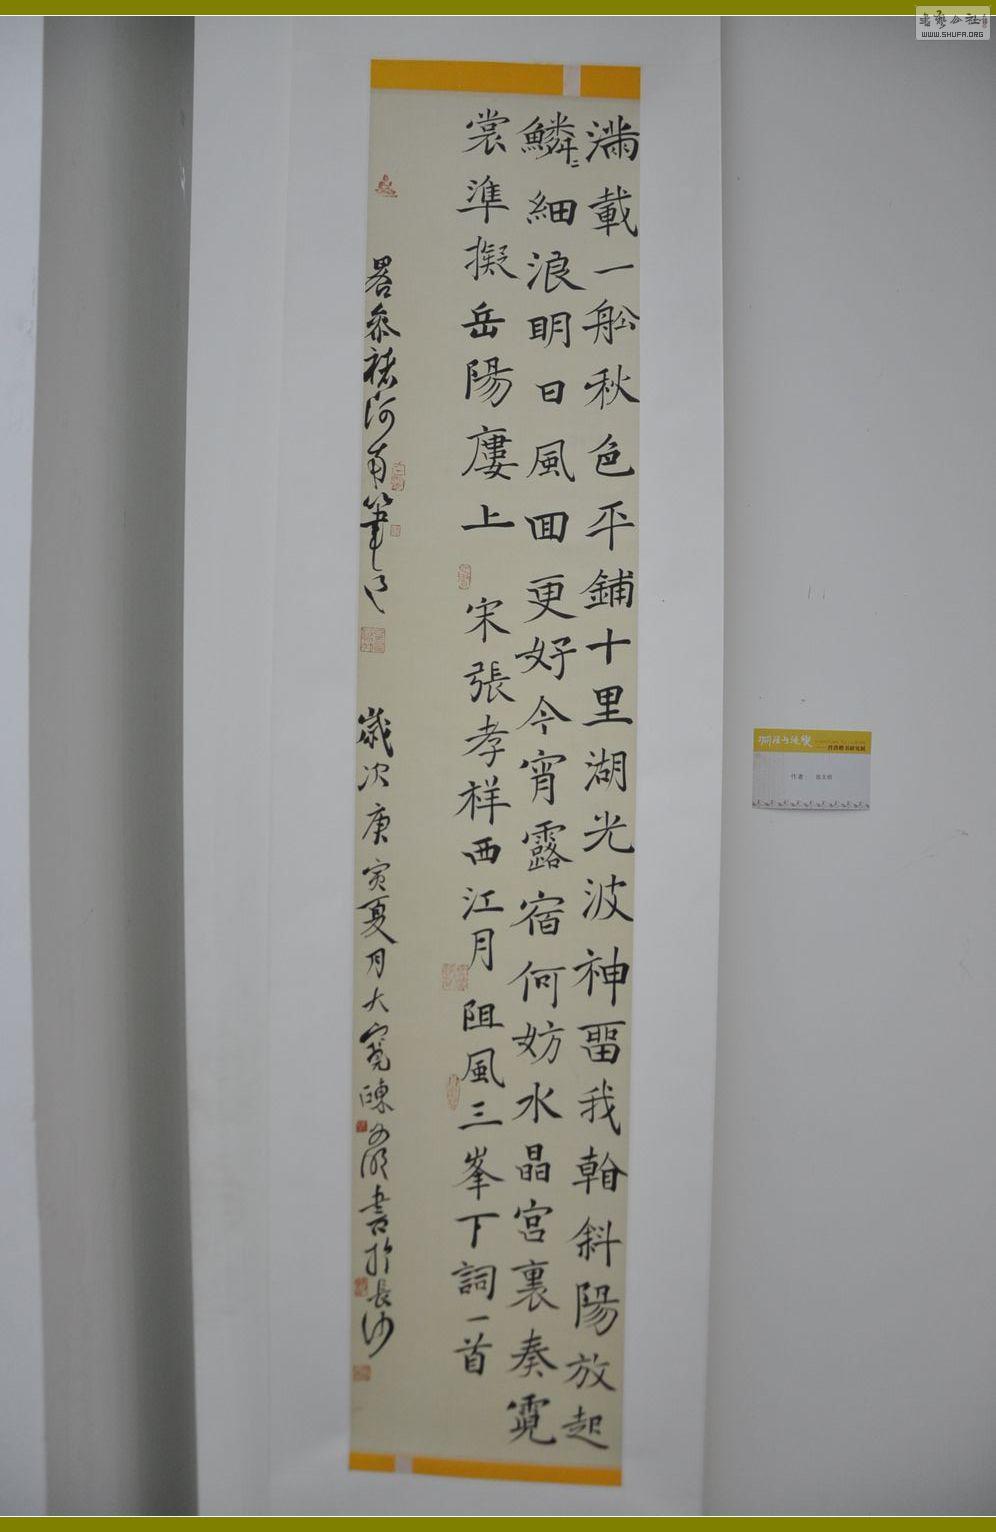 滿載一舩秋色平鋪十里湖光波神畱我㪴斜陽放起
鱗〻細浪明日風回更好今宵露宿何妨水晶宮裏奏霓
裳準擬岳陽廔上 宋張孝祥西江月 阻風三峯下詞一首
畧參褚河南筆
歲次庚寅夏月大寬陳 書於長沙
作者
WWW.SHUFA.ORG